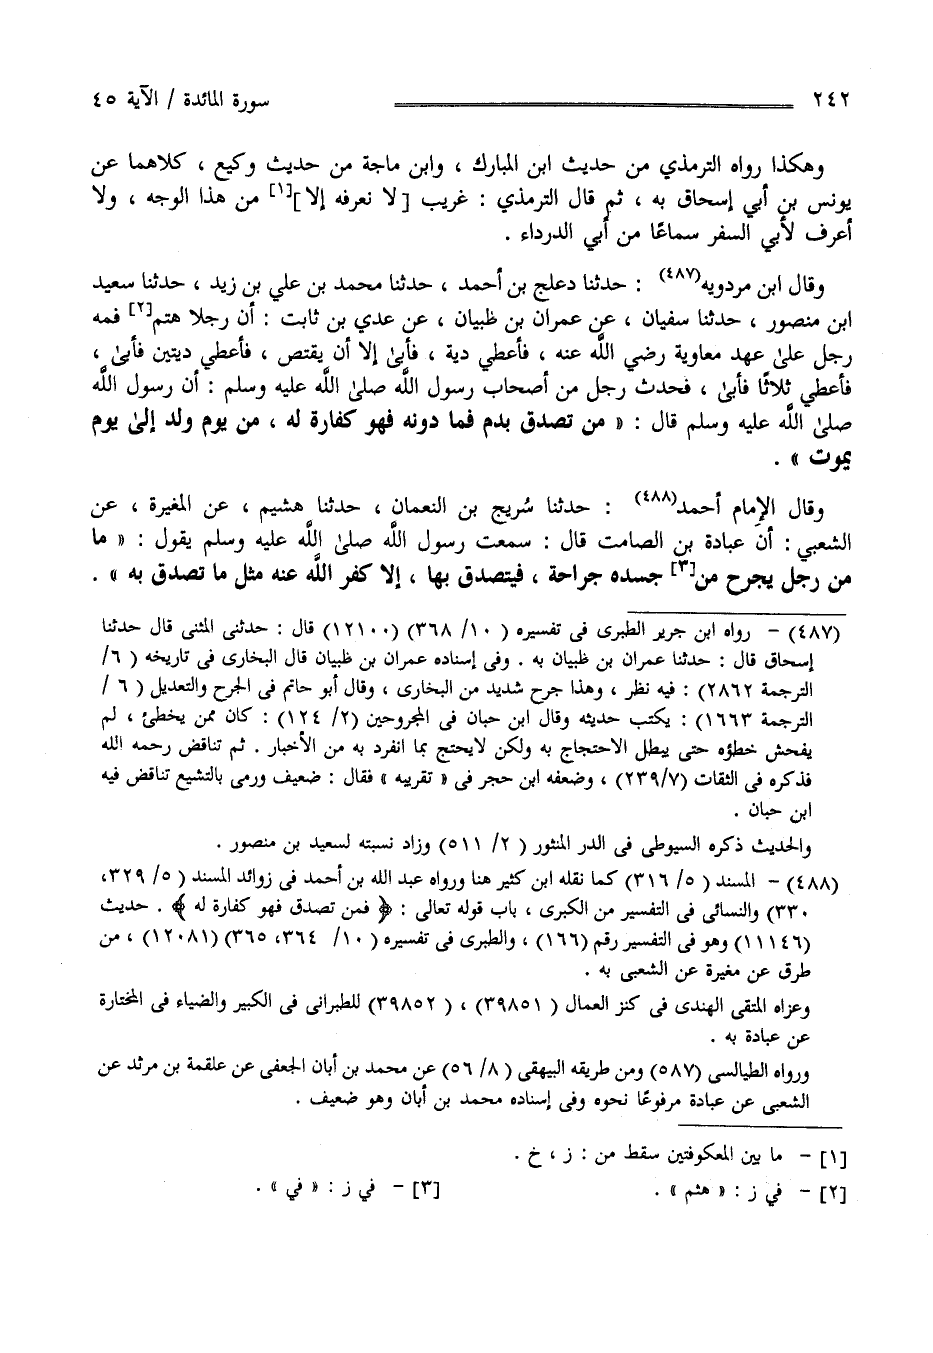 ٢٤٢ سورة المائدة / الآية ٤٥
وهكذا رواه الترمذي من حديث ابن المبارك ، وابن ماجة من حديث وكيع ، كلاهما عن
يونس بن أبي إسحاق به ، ثم قال الترمذي : غريب [ لا نعرفه إلا ][١] من هذا الوجه ، ولا
أعرف لأبي السفر سماعًا من أبي الدرداء .
وقال ابن مردويه(٤٨٧) : حدثنا دعلج بن أحمد ، حدثنا محمد بن علي بن زيد ، حدثنا سعيد
ابن منصور ، حدثنا سفيان ، عن عمران بن ظبيان ، عن عدي بن ثابت : أن رجلا هتم[٢] فمه
رجل علىٰ عهد معاوية رضي اللَّه عنه ، فأعطي دية ، فأبىٰ إلا أن يقتص ، فأعطي ديتين فأبىٰ ،
فأعطي ثلاثًا فأبىٰ ، فحدث رجل من أصحاب رسول اللَّه صلىٰ اللَّه عليه وسلم : أن رسول اللَّه
صلىٰ اللَّه عليه وسلم قال : « من تصدق بدم فما دونه فهو كفارة له ، من يوم ولد إلىٰ يوم
يموت » .
وقال الإمام أحمد(٤٨٨) : حدثنا سُريج بن النعمان ، حدثنا هشيم ، عن المغيرة ، عن
الشعبي : أن عبادة بن الصامت قال : سمعت رسول اللَّه صلىٰ اللَّه عليه وسلم يقول : « ما
من رجل يجرح من[٣] جسده جراحة ، فيتصدق بها ، إلا كفر اللَّه عنه مثل ما تصدق به » .
(٤٨٧) - رواه ابن جرير الطبرى فى تفسيره ( ١٠/ ٣٦٨) (١٢١٠٠) قال : حدثنى المثنى قال حدثنا
إسحاق قال : حدثنا عمران بن ظبيان به . وفى إسناده عمران بن ظبيان قال البخارى فى تاريخه ( ٦/
الترجمة ٢٨٦٢) : فيه نظر ، وهذا جرح شديد من البخارى ، وقال أبو حاتم فى الجرح والتعديل ( ٦ /
الترجمة ١٦٦٣) : يكتب حديثه وقال ابن حبان فى المجروحين (٢/ ١٢٤) : كان ممن يخطئ ، لم
يفحش خطؤه حتى يبطل الاحتجاج به ولكن لايحتج بما انفرد به من الأخبار . ثم تناقض رحمه الله
فذكره فى الثقات (٢٣٩/٧) ، وضعفه ابن حجر فى « تقريبه » فقال : ضعيف ورمى بالتشيع تناقض فيه
ابن حبان .
والحديث ذكره السيوطى فى الدر المنثور ( ٢/ ٥١١) وزاد نسبته لسعيد بن منصور .
(٤٨٨) - المسند ( ٥/ ٣١٦) كما نقله ابن كثير هنا ورواه عبد الله بن أحمد فى زوائد المسند ( ٥/ ٣٢٩،
٣٣٠) والنسائى فى التفسير من الكبرى ، باب قوله تعالى : ﴿ فمن تصدق فهو كفارة له ﴾ . حديث
(١١١٤٦) وهو فى التفسير رقم (١٦٦) ، والطبرى فى تفسيره ( ١٠/ ٣٦٤، ٣٦٥) (١٢٠٨١) ، من
طرق عن مغيرة عن الشعبى به .
وعزاه المتقى الهندى فى كنز العمال ( ٣٩٨٥١) ، ( ٣٩٨٥٢) للطبرانى فى الكبير والضياء فى المختارة
عن عبادة به .
ورواه الطيالسى (٥٨٧) ومن طريقه البيهقى ( ٨/ ٥٦) عن محمد بن أبان الجعفى عن علقمة بن مرثد عن
الشعبى عن عبادة مرفوعًا نحوه وفى إسناده محمد بن أبان وهو ضعيف .
[١] - ما بين المعكوفتين سقط من : ز ، خ .
[٢] - في ز : « هثم » . [٣] - في ز : « في » .